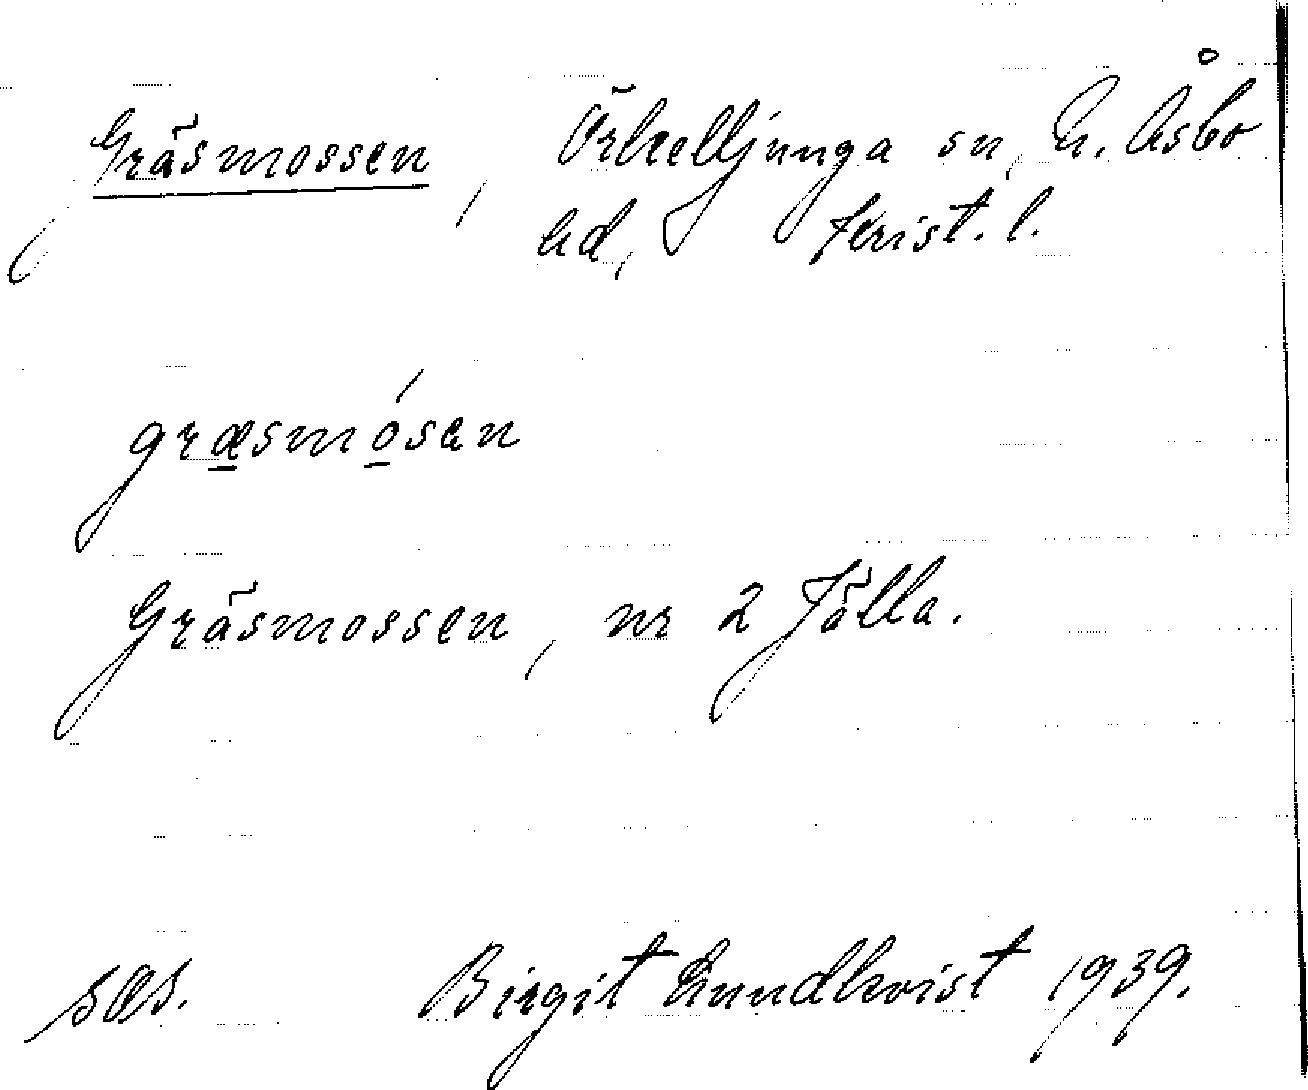 Gräsmossen, Örkelljunga sn, N. Åsbo
hd, Krist. l.
græsmósen
Gräsmossen, nr 2 Fälla.
Birgit Lundkvist 1939.